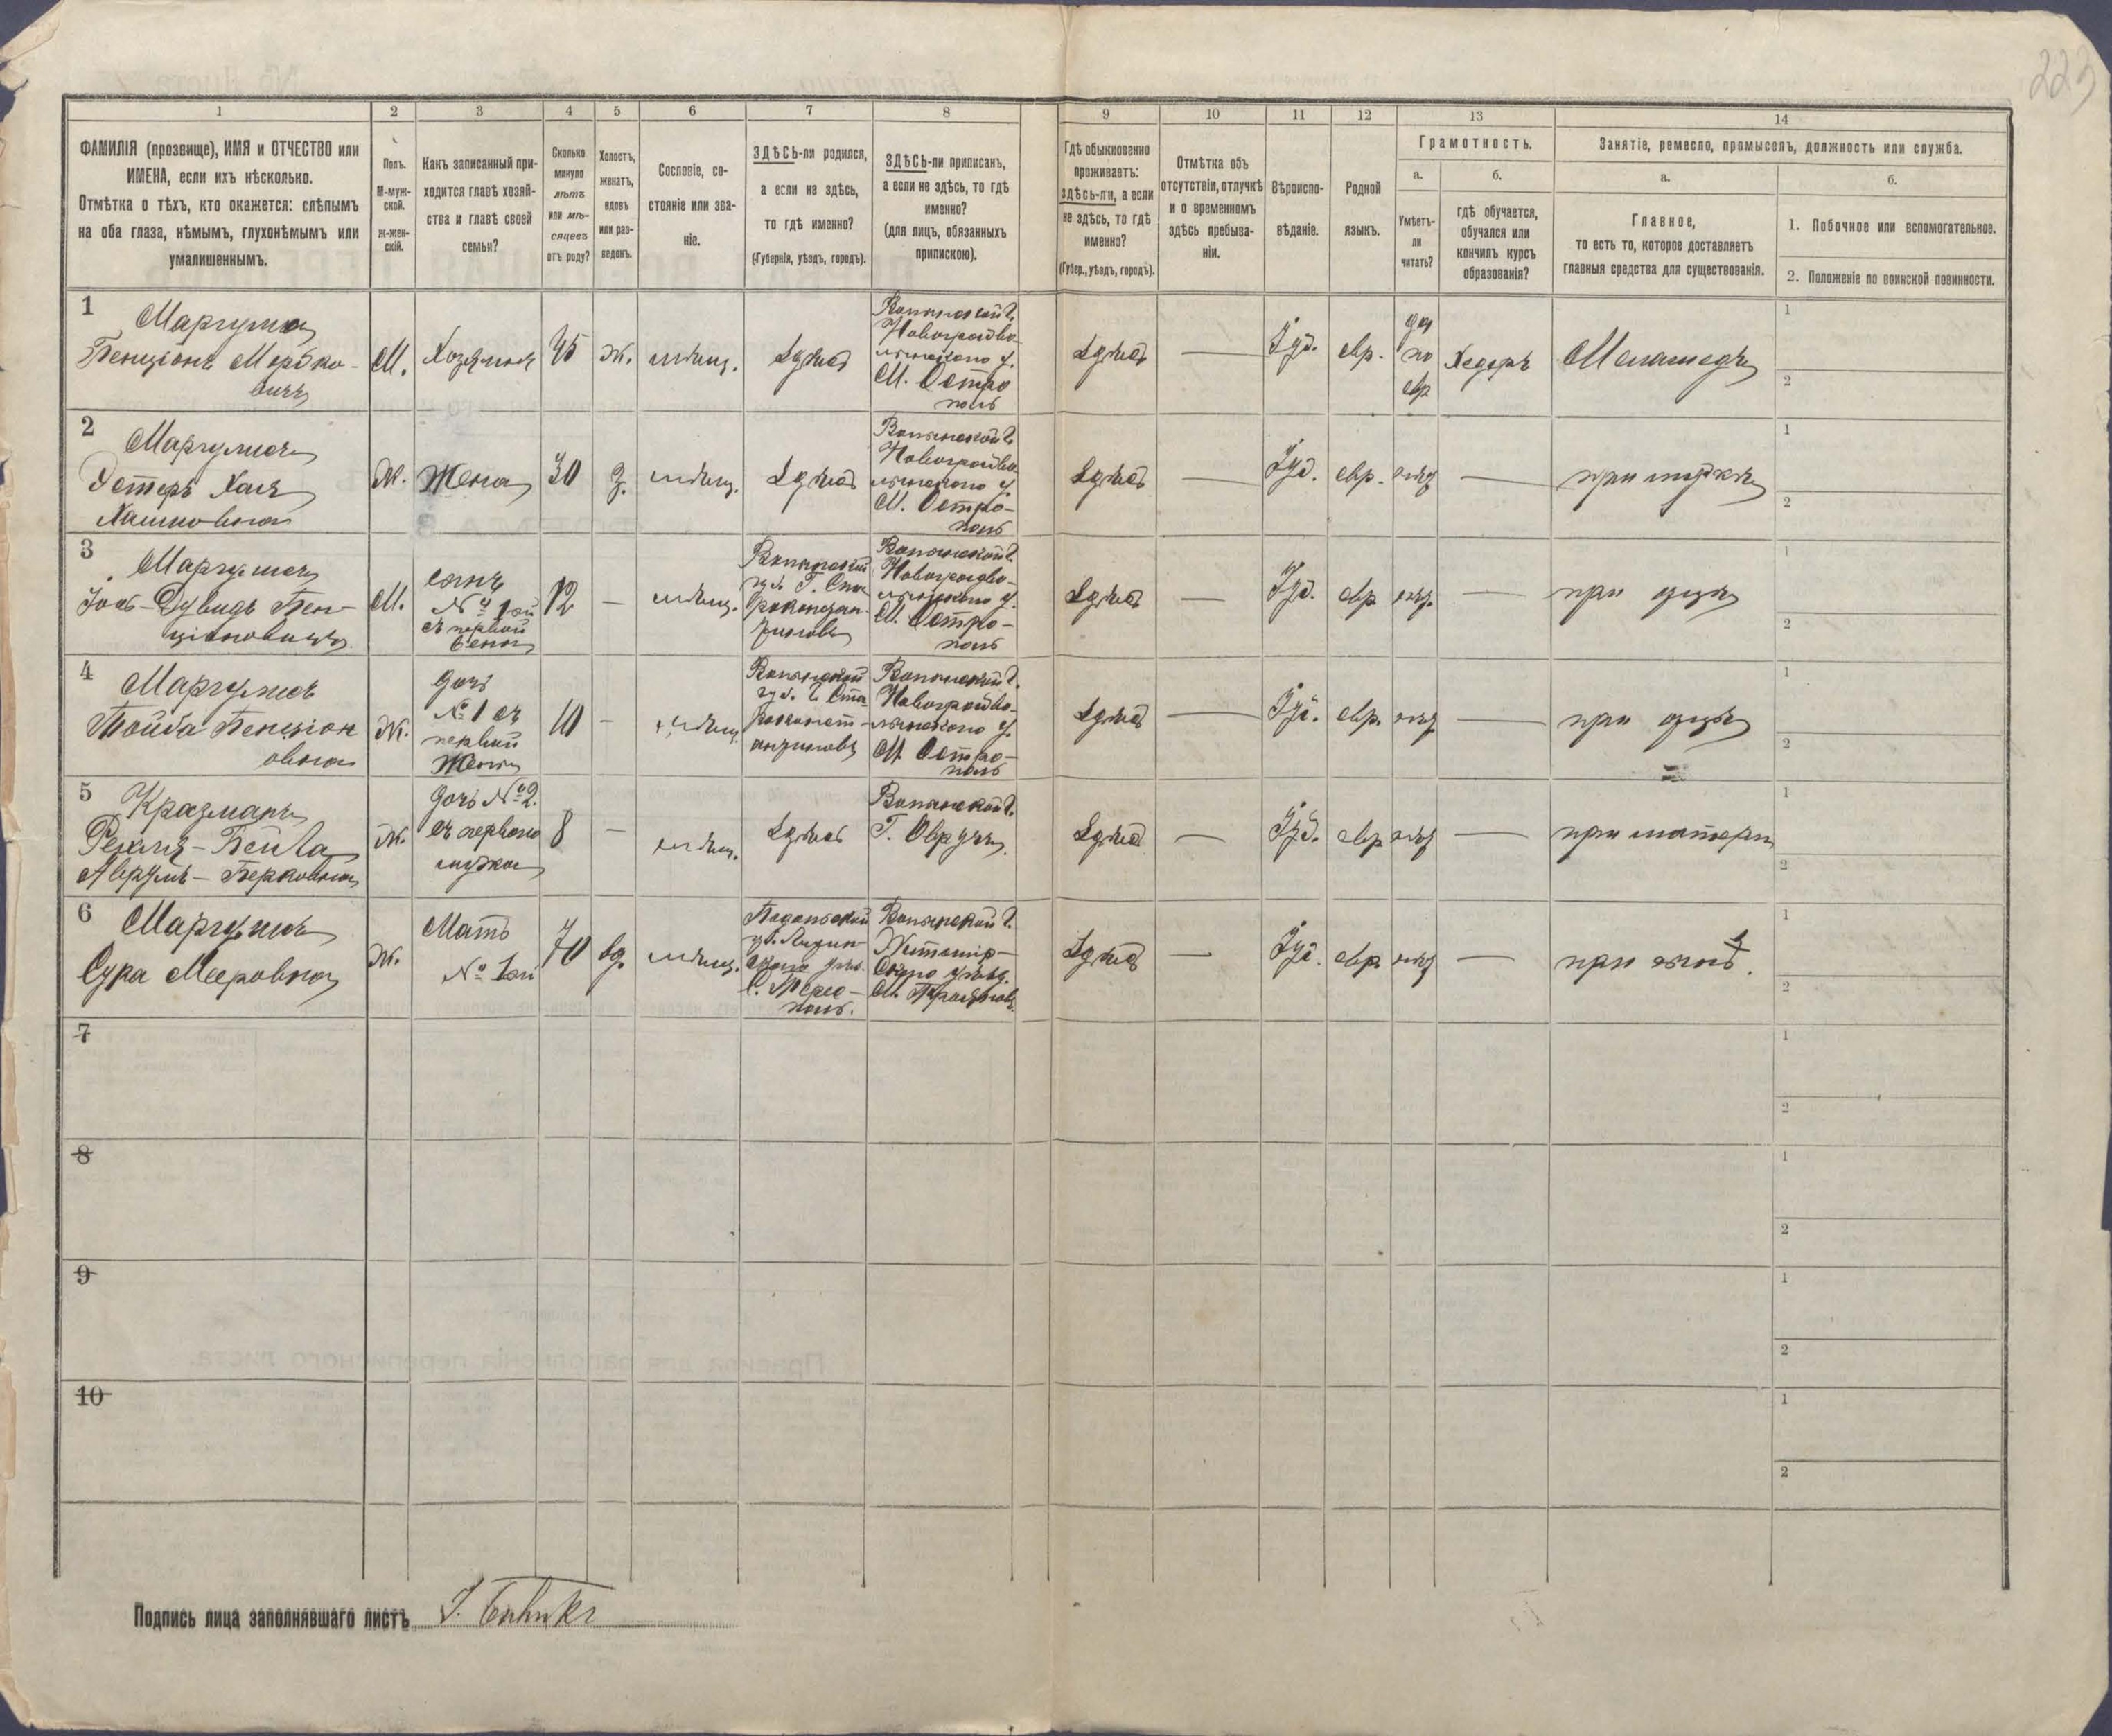 223
1
2
3
4
5
6
7
8
9
10
11
12
13
14
ФАМИЛІЯ (прозвище), ИМЯ и ОТЧЕСТВО или
ИМЕНА, если ихъ нѣсколько.
Отмѣтка о тѣхъ, кто окажется: слѣпымъ
на оба глаза, нѣмымъ, глухонѣмымъ или
умалишеннымъ.
Полъ.
М-муж-
ской.
Ж-жен-
скій.
Какъ записанный при-
ходится главѣ хозяй-
ства и главѣ своей
семьи?
Сколько
минуло
лѣтъ
или мѣ-
сяцевъ
отъ роду?
Холостъ,
женатъ,
вдовъ
или раз-
веденъ.
Сословіе, со-
стояніе или зва-
ніе.
ЗДѢСЬ-ли родился,
а если не здѣсь,
то гдѣ именно?
(Губернія, уѣздъ, городъ).
ЗДѢСЬ-ли приписанъ,
а если не здѣсь, то гдѣ
именно?
(для лицъ, обязанныхъ
припискою).
Гдѣ обыкновенно
проживаетъ:
здѣсь-ли, а если
не здѣсь, то гдѣ
именно?
(Губер., уѣздъ, городъ).
Отмѣтка объ
отсутствіи, отлучкѣ
и о временномъ
здѣсь пребыва-
ніи.
Вѣроиспо-
вѣданіе.
Родной
языкъ.
Грамотность.
а.
Умѣетъ-
ли
читать?
б.
гдѣ обучается,
обучался или
кончилъ курсъ
образованія?
Занятіе, ремесло, промыселъ, должность или служба.
а.
Главное,
то есть то, которое доставляетъ
главныя средства для существованія.
б.
1. Побочное или вспомогательное.
2. Положеніе по воинской повинности.
1
Маргулисъ
Бенціонъ Мерко-
вичъ
М.
Хозяинъ
45
ж.
мѣщ.
Здѣсь
Волынской Г.
Новоградво-
лынскаго у.
М. Остро
поль
Здѣсь
—
Іуд.
евр.
да
по
евр
Хедеръ
Меламедъ
1
2
2
Маргулисъ
Эстеръ Хая
Ж.
Жена
30
З.
мѣщ.
Здѣсь
Волынской Г.
Новоградво
лынскаго у.
М. Остро-
поль
Здѣсь
—
Іуд.
евр.
нѣт
—
при мужѣ
1
2
3
Маргулисъ
Дувидъ Бен-
ціоновичъ
М.
сынъ
№ 1ой
съ первой
жены
12
—
мѣщ.
Волынской
губ. Г. Ста
роконстан-
тиновъ
Волынской Г.
Новоградво-
лынскаго у.
М. Остро-
поль
Здѣсь
—
Іуд.
евр
нѣт.
—
при отцѣ
1
2
4
Маргулисъ
Тойба Бенціон
овна
Ж.
дочь
№ 1 съ
первой
жены
10
—
мѣщ.
Волынской
губ. Г. Ста
роконст-
антиновъ
Волынской Г.
Новоградво-
лынскаго у.
М. Остро-
поль
Здѣсь
—
Іуд.
евр.
нѣт
—
при отцѣ
1
2
5
Крозманъ
Рехля-Бейла
Аврумъ-Берковна
Ж.
дочь № 2.
съ перваго
мужа
8
—
мѣщ.
Здѣсь
Волынской Г.
Г. Овручъ
Здѣсь
—
Іуд.
евр
нѣт
—
при матери
1
2
6
Маргулисъ
Сура Мееровна
Ж.
Мать
№ 1ой
70
вд.
мѣщ.
Подольской
Волынской Г.
Житомір-
скаго уѣзд.
Здѣсь
—
Іуд.
евр
нѣт
—
при сынѣ.
1
2
7
1
2
8
1
2
9
1
2
10
1
2
Подпись лица заполнявшаго листъ